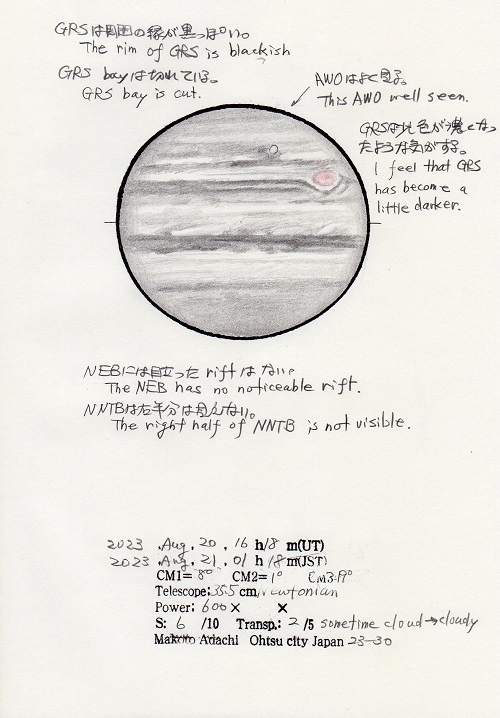 GRSは周囲の縁が黒っぽい。
The rim of GRS is blackish
GRS bayは切れている。
GRS bay is cut.
AWOはよく見る。
This AWO well seen.
GRSは少し色が濃くなっ
たような気がする。
I feel that GRS
has become a
little darker.
NEBには目立ったriftはない。
The NEB has no noticeable rift.
NNTBは左半分は見えない。
The right half of NNTB is not visible.
2023 .Aug. 20 , 16 h 18 m(UT)
2023 .Aug. 21 , 01 h 18 m(JST)
CM1= 8° CM2= 1° CM3=19°
Telescope: 35.5 cm, newtonian
Power: 600 × ×
S: 6 /10 Transp.: 2 /5 sometime cloud→cloudy
Makoto Adachi Ohtsu city Japan 23-30